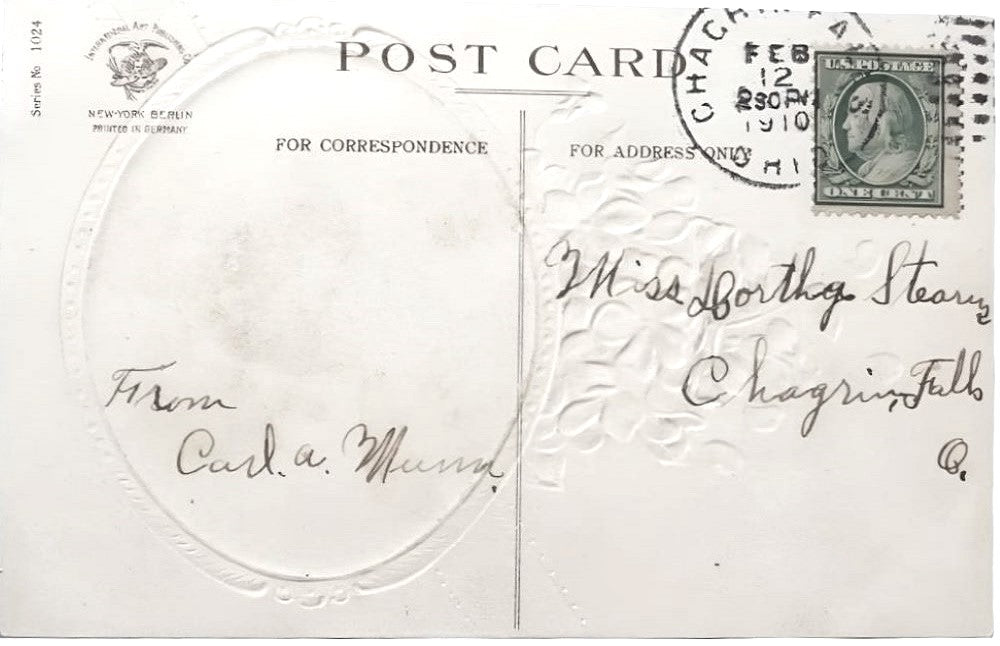 Series No 1024
INTERNATIONAL ART PUBLISHING CO.
NEW-YORK BERLIN
PRINTED IN GERMANY
POST CARD
FOR CORRESPONDENCE
FOR ADDRESS ONLY
CHAGRIN FA
FEB
12
230PM
1910
OHIO
U.S. POSTAGE
ONE CENT
Miss Dorthy Stearns
Chagrin, Falls
O.
From
Carl. A. Munn.